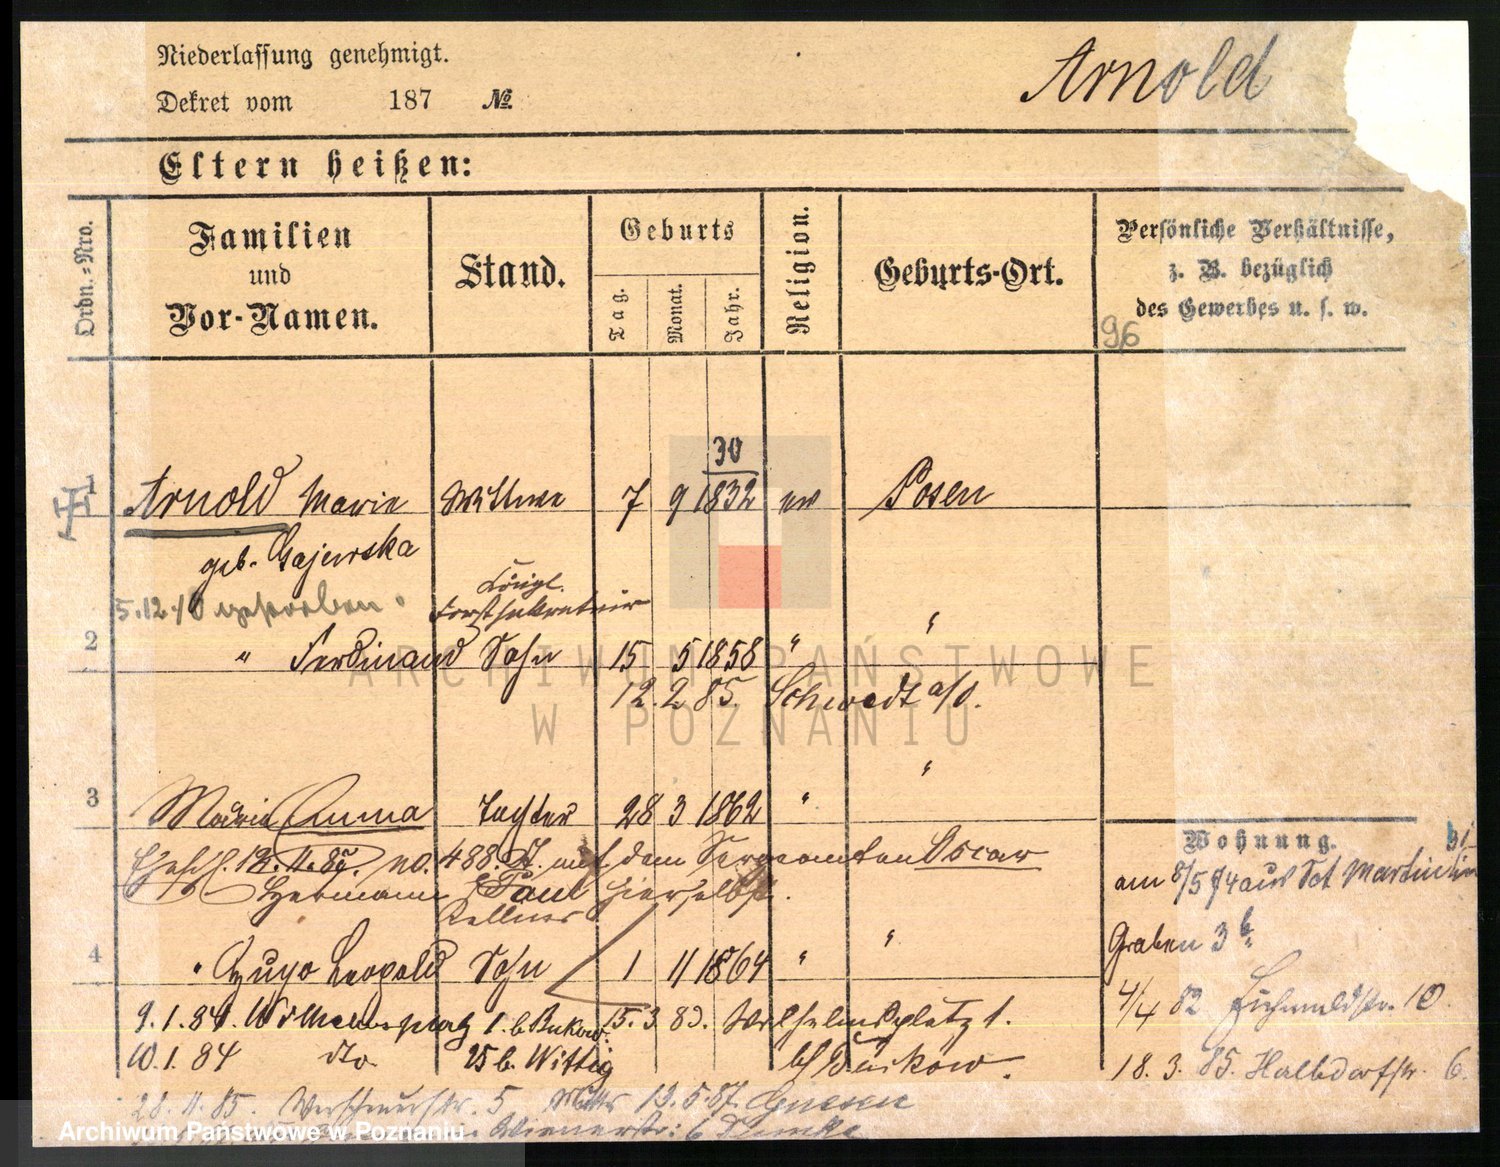 Niederlassung genehmigt.
Dekret vom 187 №
Arnold
Eltern heißen:
Ordn.-Nro.
Familien
und
Vor-Namen.
Stand.
Geburts
Tag.
Monat.
Jahr.
Religion.
Geburts-Ort.
Persönliche Verhältnisse,
z. B. bezüglich
des Gewerbes u. s. w.
96
30
1 Arnold Marie Wittwe 7 9 1832 ev Posen
geb. Gajewska
Königl.
5.12.10 gestorben. Forstsekretair
2 " Ferdinand Sohn 15 5 1858 " "
12. 2. 85. Schwedt a/O.
3 Marie Emma Tochter 28 3 1862 " "
Ehesch. 12. 11. 85. no. 488. mit dem Sergeanten Oscar
Hermann Paul hierselbst.
Kellner
4 " Hugo Leopold Sohn 1 11 1864 " "
9. 1. 84. Wilhelmsplatz 1. b. Bukow. 15. 3. 83. Wilhelmsplatz 1.
10. 1. 84 dto 25 b. Wittig bei Bukow.
28. 11. 85. 5 13. 5. 87. Gnesen
6
Wohnung.
am 8/5 74 aus Sct Martin
Graben 3 b.
4/4 82 10.
18. 3. 85. Halbdorfstr. 6.
ARCHIWUM PAŃSTWOWE
W POZNANIU
Archiwum Państwowe w Poznaniu